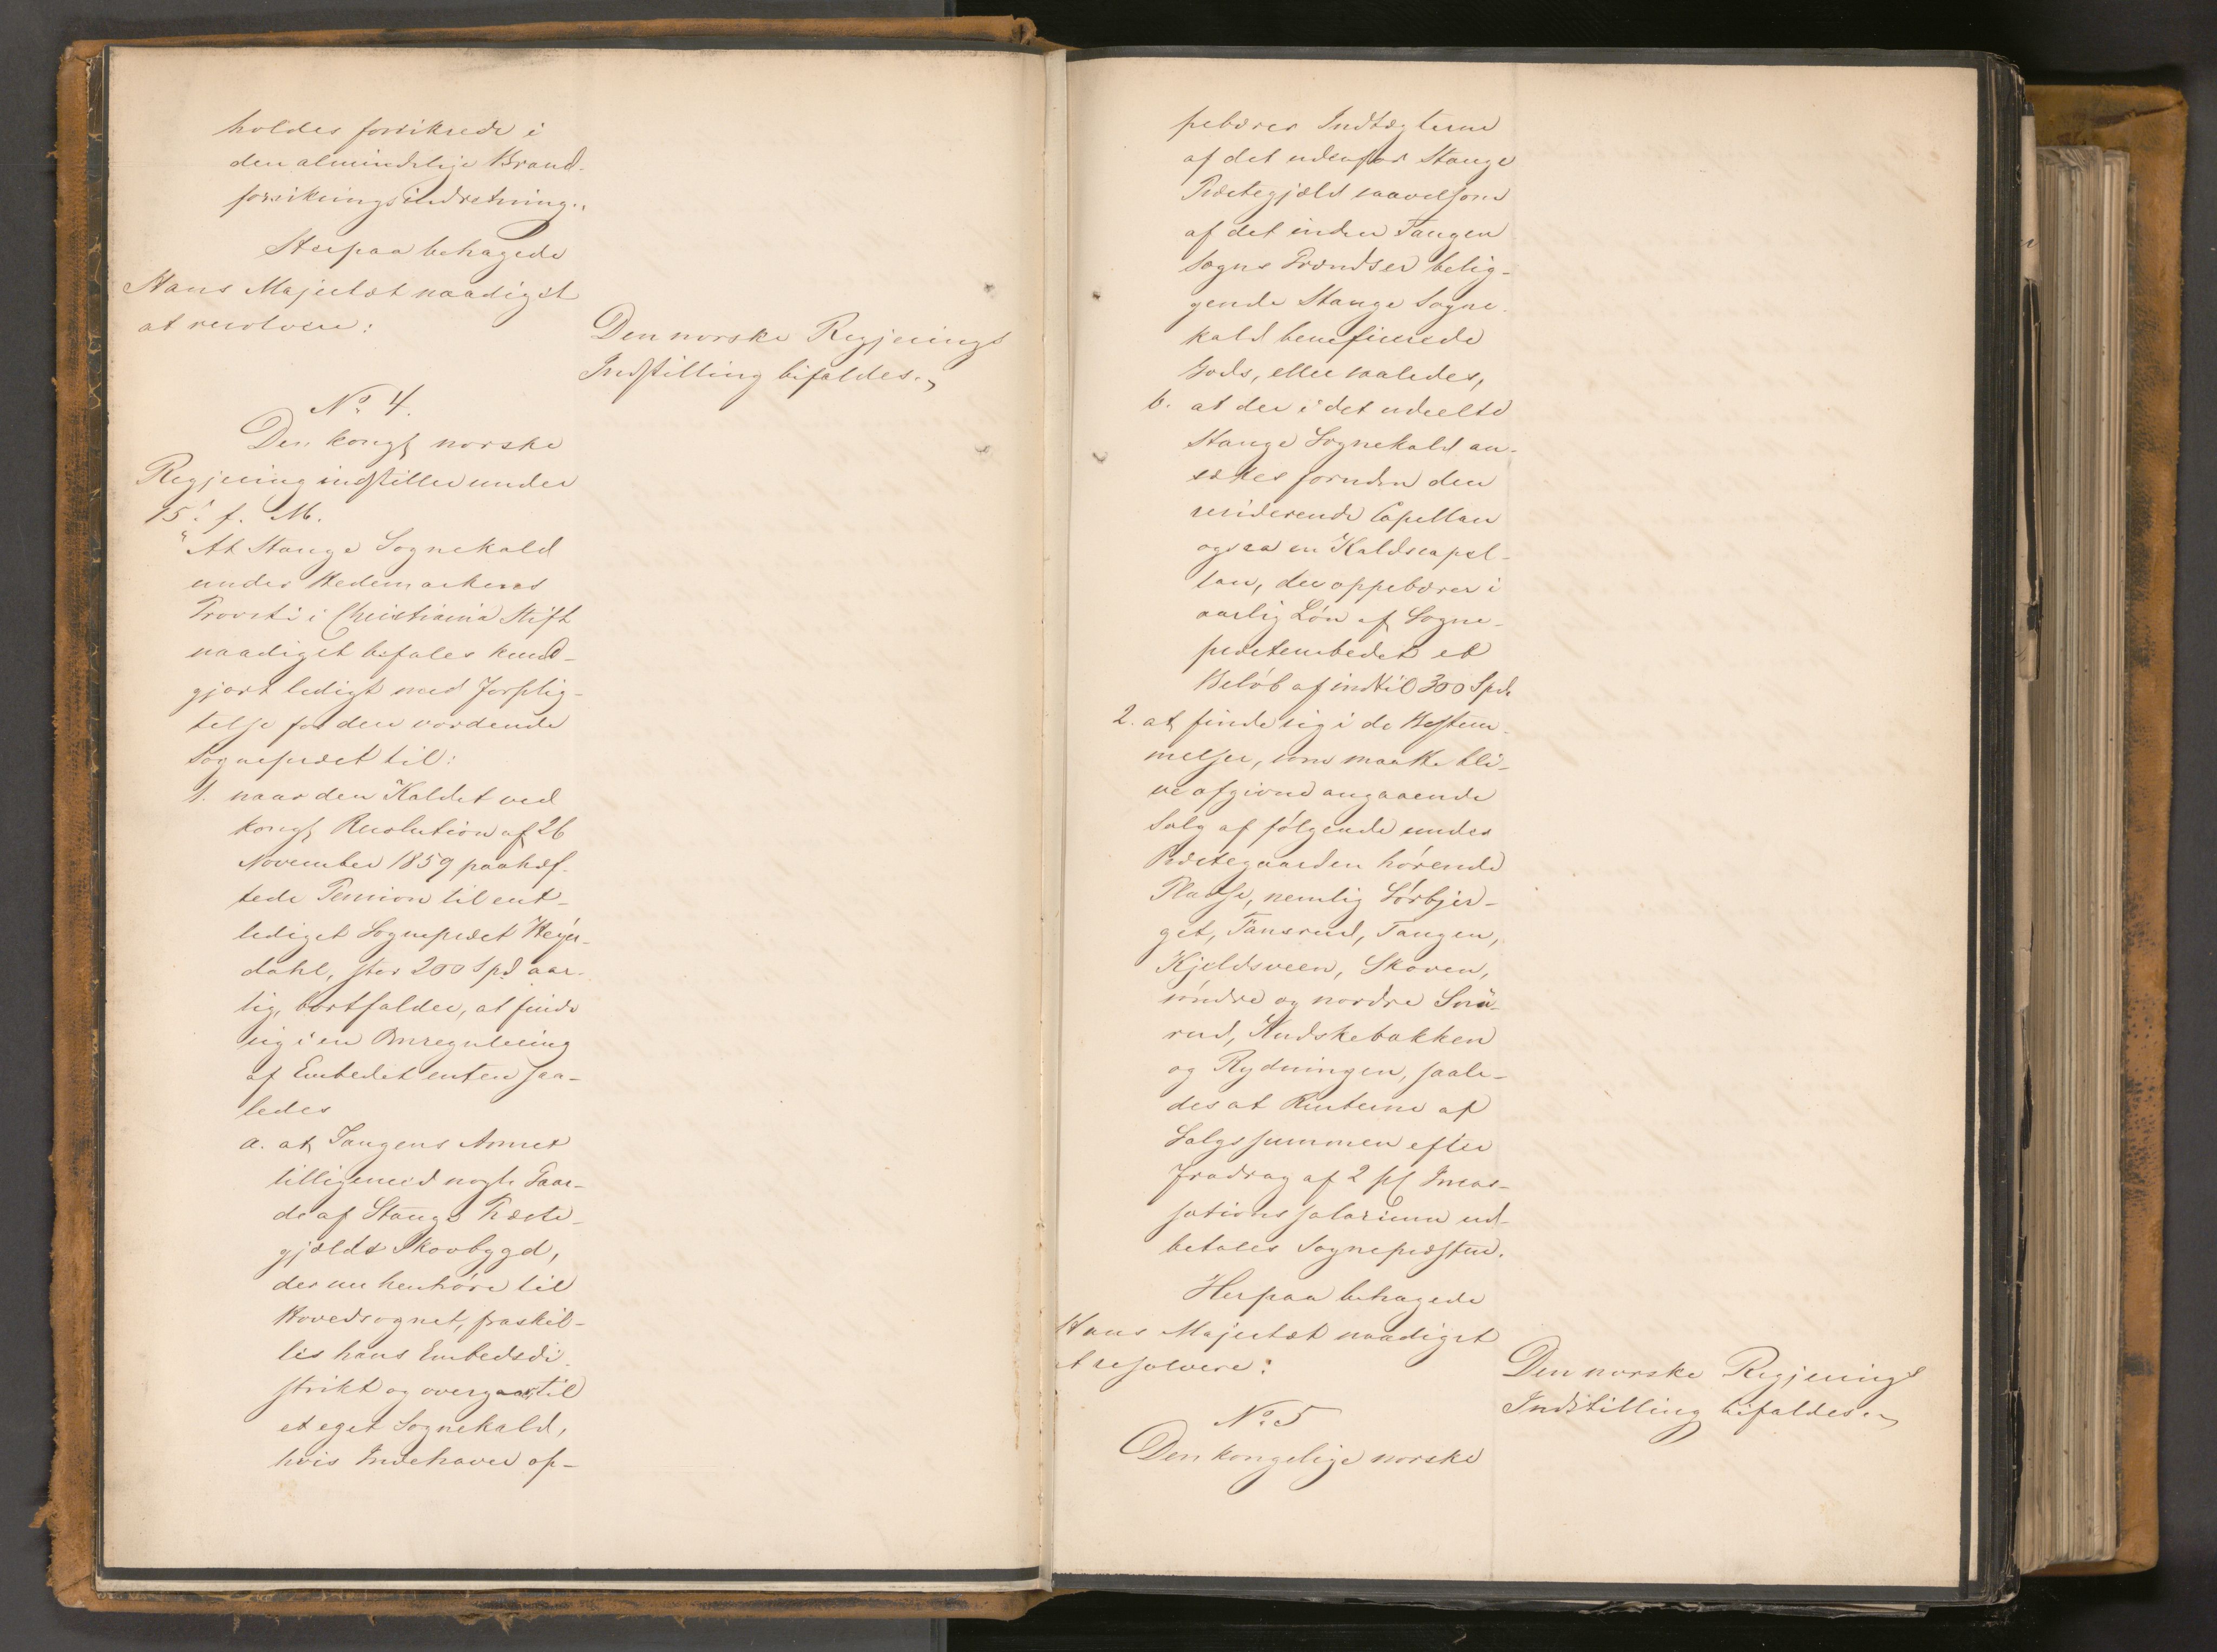 holdes forsikrede i
den almindelige Brand-
forsikringsindretning."
Herpaa behagede
Hans Majestæt naadigst
at resolvere:
Den norske Regjerings
Indstilling bifaldes.
No 4.
Den kongl norske
Regjering indstiller under
15. f. M.
"At Stange Sognekald
under Hedemarkens
Provsti i Christiania Stift
naadigst befales kund-
gjort ledigt med Forplig-
telse for den vordende
Sognepræst til:
1. naar den Kaldet ved
kongl Resolution af 26
November 1859 paahæf-
tede Pension til ent-
lediget Sognepræst Heyer-
dahl, stor 200 Spd aar-
lig, bortfalder, at finde
sig i en Omregulering
af Embedet enten saa-
ledes
a. at Tangens Annex
tilligemed nogle Gaar-
de af Stange Præste-
gjælds Skovbygd,
der nu henhøre til
Hovedsognet, fraskil-
les hans Embedsdi-
strikt og overgaar til
et eget Sognekald,
hvis Indehaver op-
pebærer Indtægterne
af det udenfor Stange
Præstegjæld saavelsom
af det inden Tangen
Sogns Grændser belig-
gende Stange Sogne-
kald beneficerede
Gods, eller saaledes,
b. at der i det udeelte
Stange Sognekald an-
sættes foruden den
residerende Capellan
ogsaa en Kaldscapel-
lan, der oppebærer i
aarlig Løn af Sogne-
præstembedet et
Beløb af indtil 300 Spd.
2. at finde sig i de Bestem-
melser, som maatte bli-
ve afgivne angaaende
Salg af følgende under
Præstegaarden hørende
Pladse, nemlig Sørbjer-
get, Tansrud, Tangen,
Kjeldsveen, Skoven,
søndre og nordre Snu-
rud, Hudskebakken
og Rydningen, saale-
des at Renterne af
Salgssummen efter
Fradrag af 2 pCt Incas-
sationssalarium ud-
betales Sognepræsten.
Herpaa behagede
Hans Majestæt naadigst
at resolvere:
Den norske Regjerings
Indstilling bifaldes.
No 5
Den kongelige norske